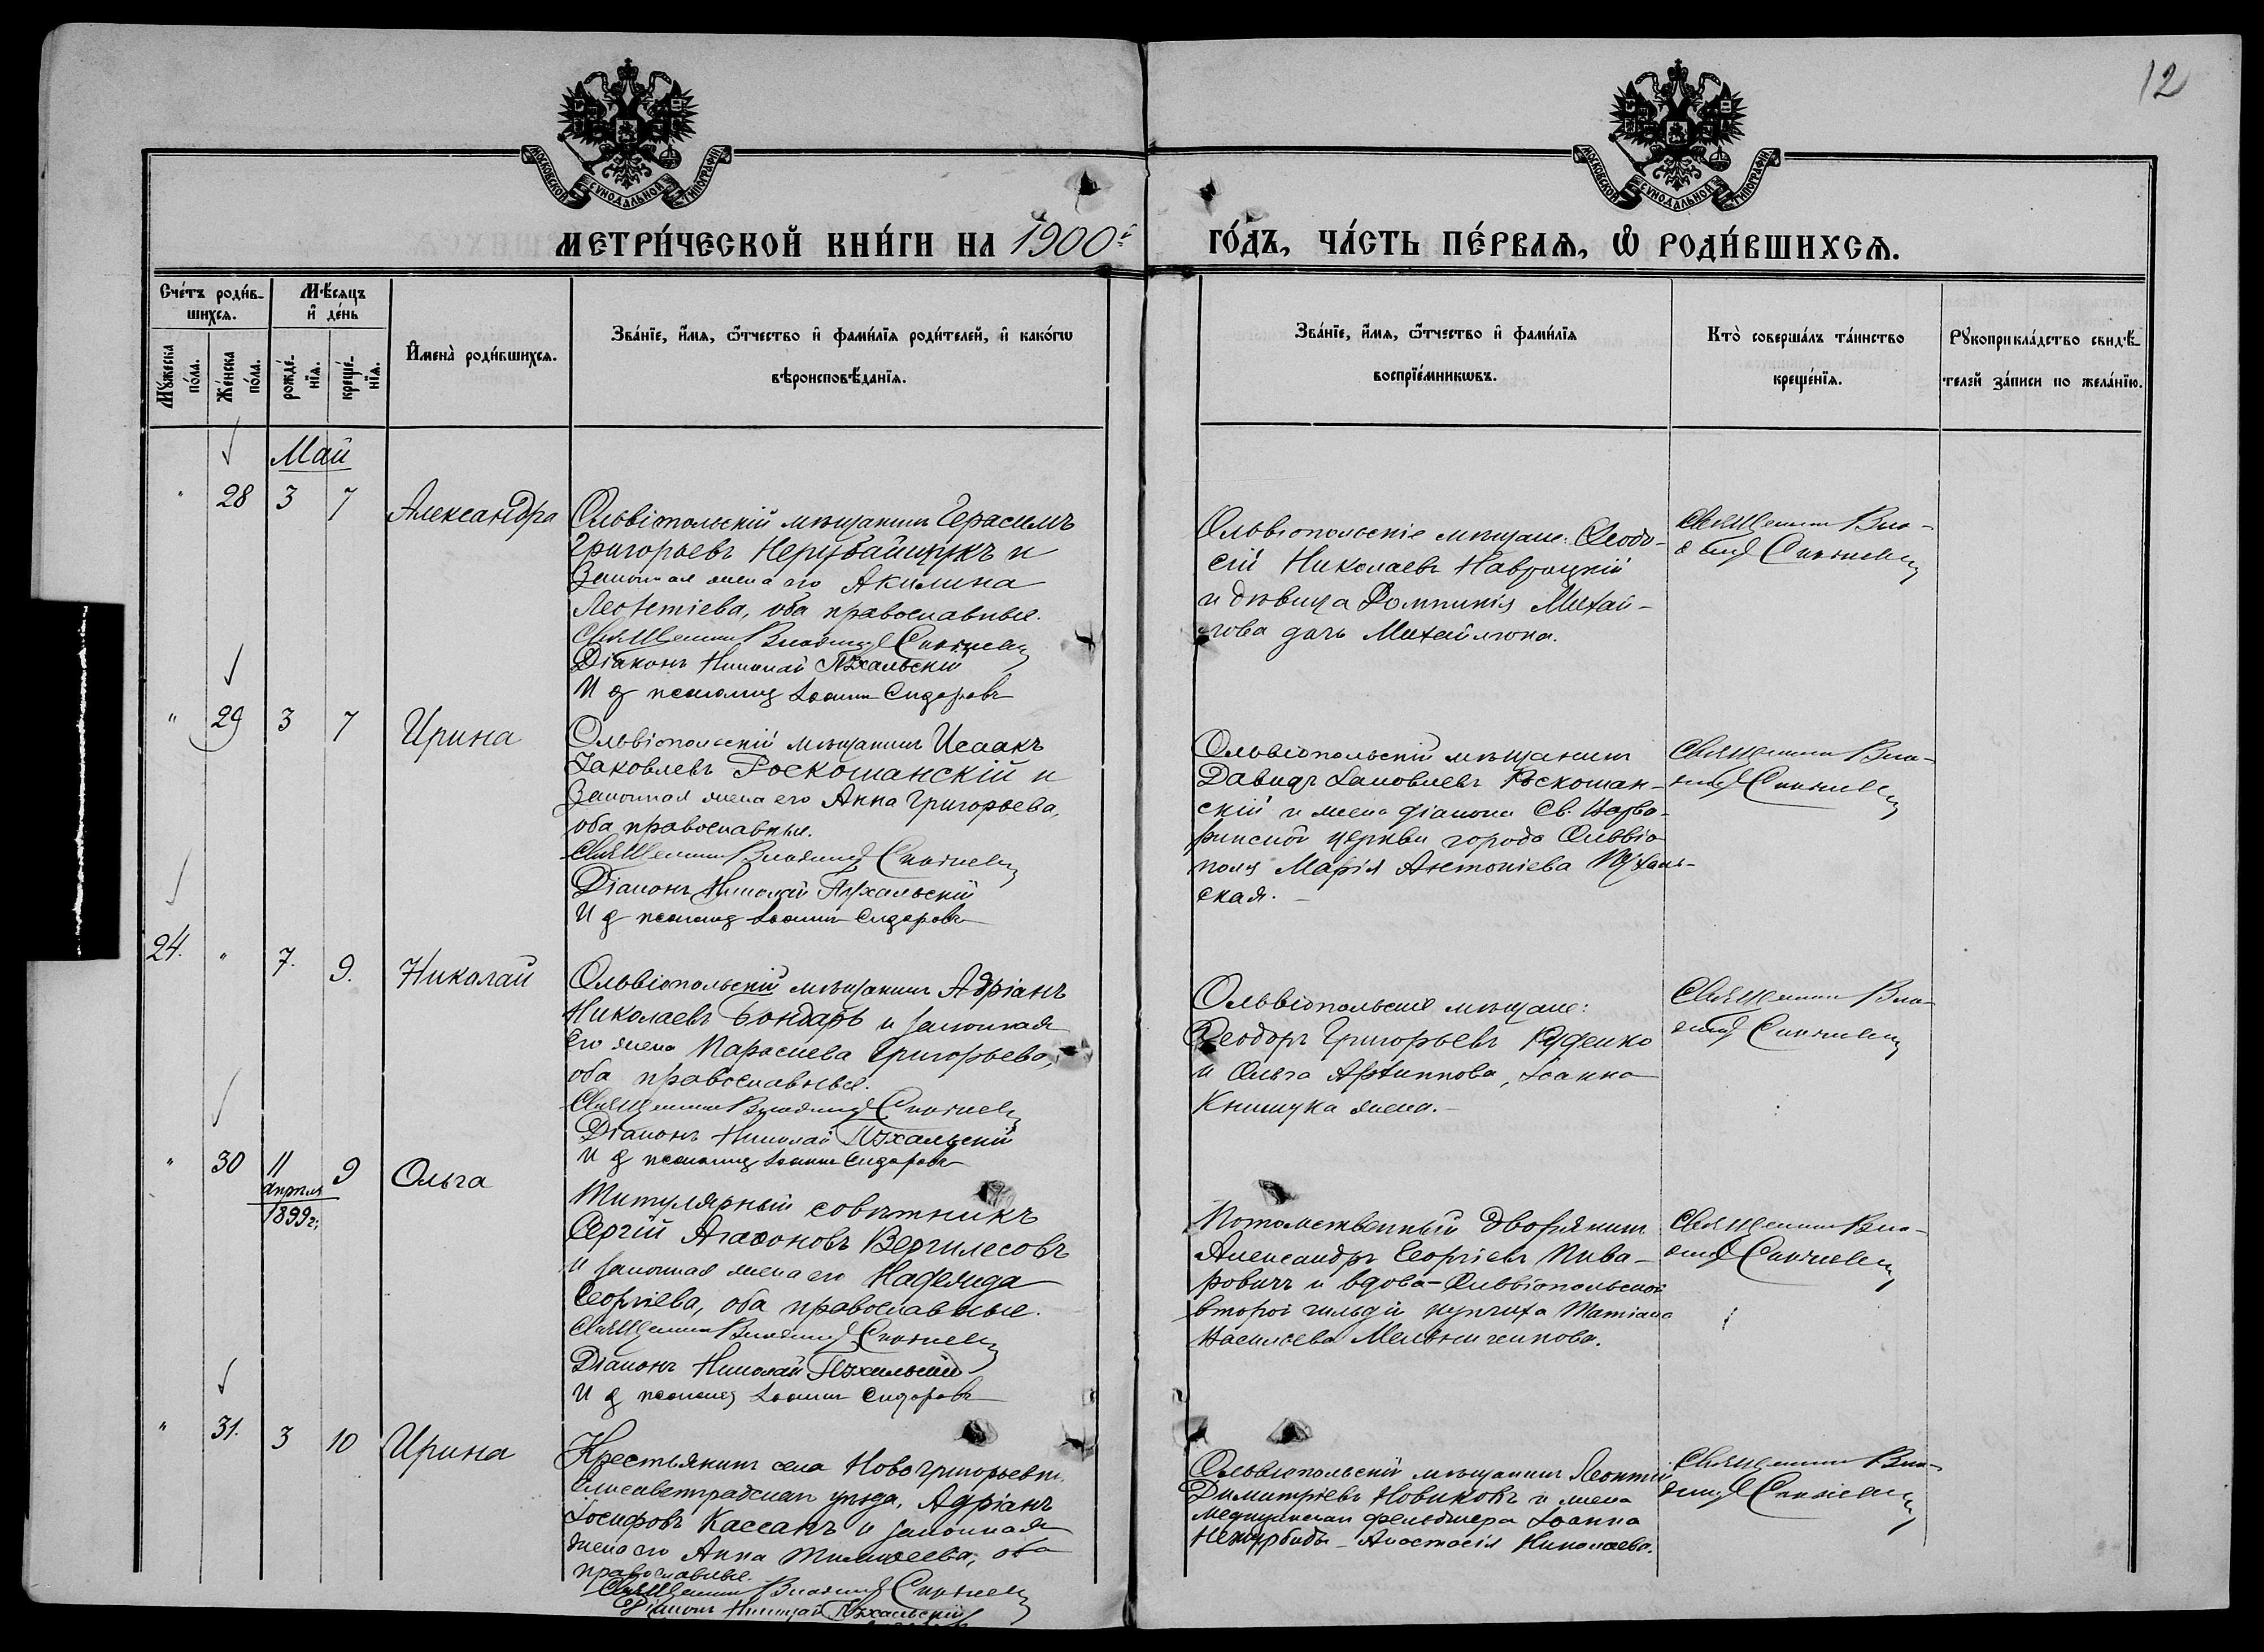 12
МОСКОВСКОЙ СѴНОДАЛЬНОЙ ТИПОГРАФІИ
МОСКОВСКОЙ СѴНОДАЛЬНОЙ ТИПОГРАФІИ
МЕТРИ́ЧЕСКОЙ КНИ́ГИ НА 1900й
ГО́ДЪ, ЧА́СТЬ ПЕ́РВАѦ, Ѽ РОДИ́ВШИХСѦ.
Сче́тъ роди́в-
шихсѧ.
Мꙋ́жеска по́ла.
Же́нска по́ла.
Мѣ́сяцъ
и҆ де́нь
рожде́-
нїѧ.
креще́-
нїѧ.
И҆мена̀ роди́вшихсѧ.
Зва́нїе, и҆́мѧ, ѻ҆́тчество и҆ фами́лїѧ роди́телей, и҆ како́гѡ
вѣроисповѣ́данїѧ.
Зва́нїе, и҆́мѧ, ѻ҆́тчество и҆ фами́лїѧ
воспрїе́мникѡвъ.
Кто̀ соверша́лъ та́инство
креще́нїѧ.
Рꙋкоприкла́дство свидѣ́-
телей за́писи по жела́нїю.
Май
" 28 3 7 Александра
Ольвіопольскій мѣщанинъ Герасимъ
Григорьевъ Нерубайщукъ и
законная жена его Акилина
Леонтіева, оба православные.
Священникъ
Діаконъ Николай Пѣхальскій
И д псаломщ Іоаннъ Сидоровъ
Ольвіопольскіе мѣщане: Ѳеодо-
сій Николаевъ Навроцкій
и дѣвица Домникія Михай-
лова дочь Михайлюка.
Священникъ Вла-
" 29 3 7 Ирина
Ольвіопольскій мѣщанинъ Исаакъ
Іаковлевъ Роскошанскій и
законная жена его Анна Григорьева,
оба православные.
Священникъ
Діаконъ Николай Пѣхальскій
И д псаломщ Іоаннъ Сидоровъ
Ольвіопольскій мѣщанинъ
Давидъ Іаковлевъ Роскошан-
скій и жена діакона Св. Варва-
ринской церкви города Ольвіо-
поля Марія Антоніева Пѣхаль-
ская.
Священникъ Вла-
24. " 7. 9. Николай
Ольвіопольскій мѣщанинъ Адріанъ
Николаевъ Бондарь и законная
его жена Параскева Григорьева,
оба православные.
Священникъ
Діаконъ Николай Пѣхальскій
И д псаломщ Іоаннъ Сидоровъ
Ольвіопольскіе мѣщане:
Ѳеодоръ Григорьевъ Руденко
и Ольга Архиппова, Іоанна
Книшука жена.
Священникъ Вла-
" 30 11 апрѣля 1899 г. 9 Ольга
Титулярный совѣтникъ
Сергій Агаѳоновъ Вергилесовъ
и законная жена его Надежда
Георгіева, оба православные.
Священникъ
Діаконъ Николай Пѣхальскій
И д псаломщ Іоаннъ Сидоровъ
Потомственный дворянинъ
Александръ Георгіевъ Пива-
ровичъ и вдова Ольвіопольская
второй гильдіи купчиха Татіана
Васильева Мельниченкова.
Священникъ Вла-
" 31. 3 10 Ирина
Крестьянинъ села Новогригорьевки,
Елисаветградскаго уѣзда, Адріанъ
Іосифовъ Кассапъ и законная
жена его Анна Тимоѳеева, оба
православные.
Священникъ
Діаконъ Николай Пѣхальскій
Ольвіопольскій мѣщанинъ Леонтій
Димитріевъ Новиковъ и жена
медицинскаго фельдшера Іоанна
Анастасія Николаева.
Священникъ Вла-